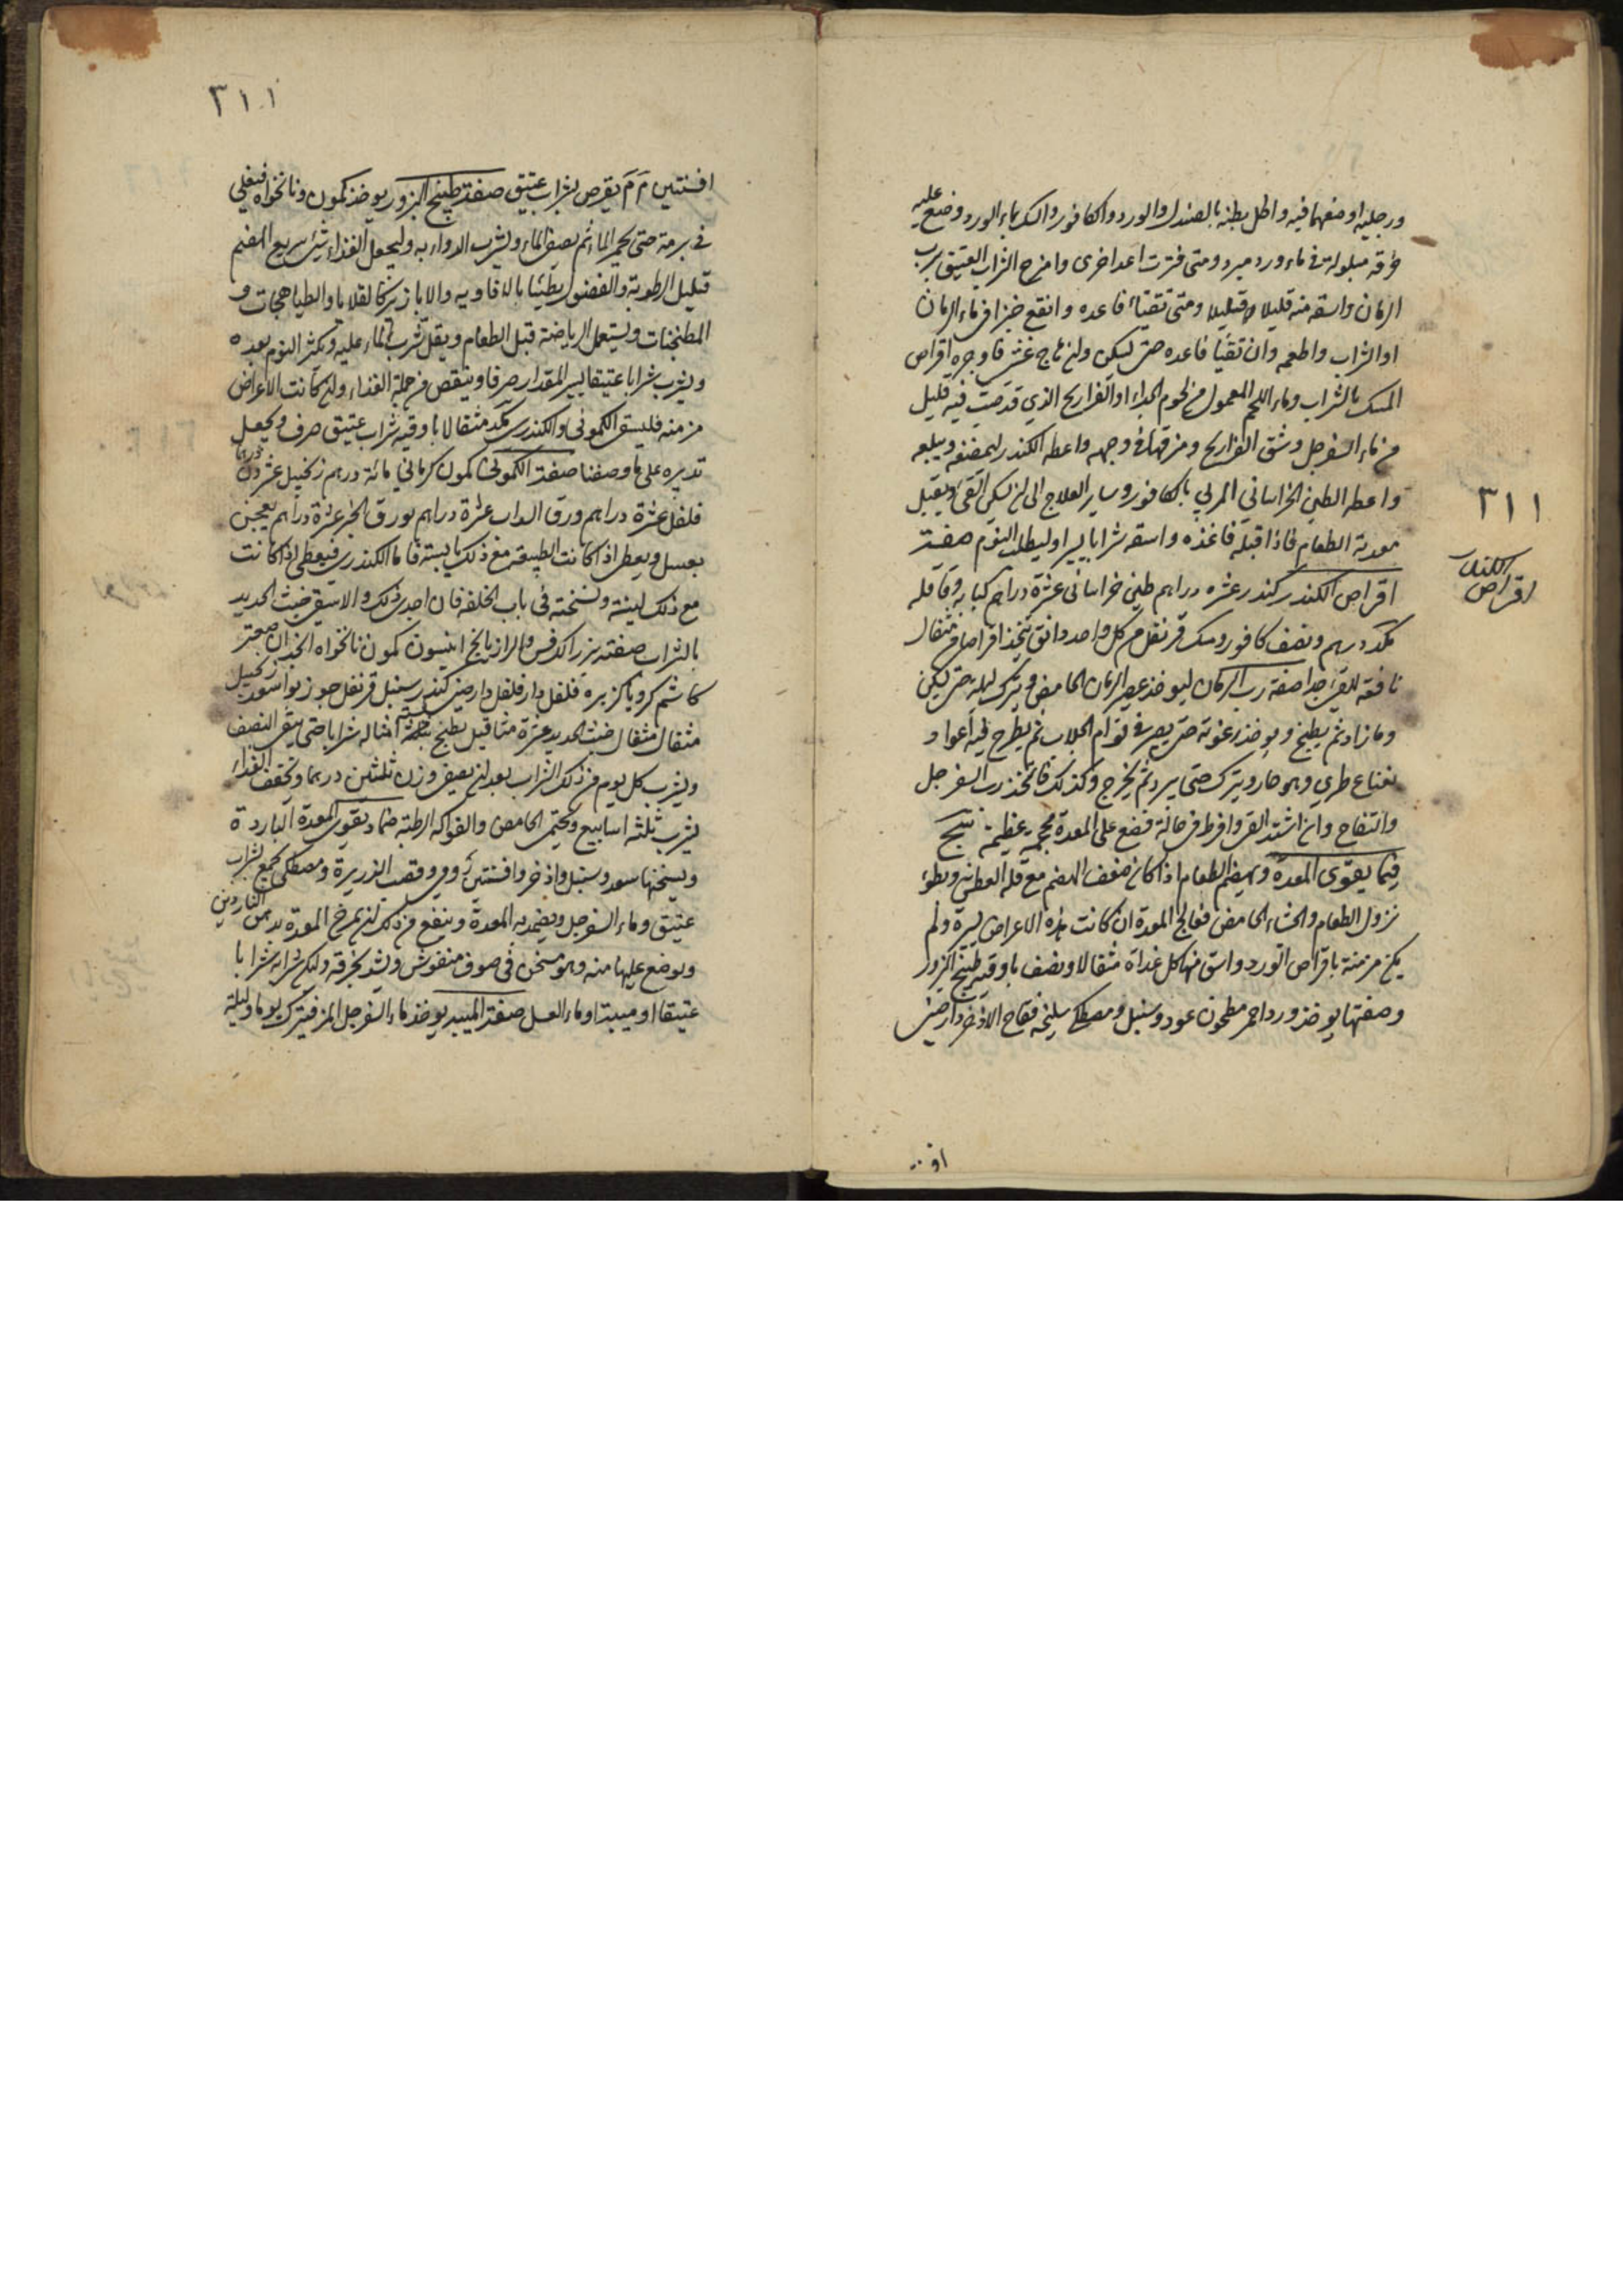 ورجليه او ضعهما فيه واطل بطنه بالصندل والورد والكافور والسك بماء الورد وضع عليه
خرقه مبلولة في ماء ورد مبرد ومتى فترت اعد اخرى وامزج الشراب العتيق برب
الرمان واسقه منه قليلا قليلا ومتى تقيأ فاعده وانقع خبزا في ماء الرمان
او الشراب واطعمه وان تقيأ فاعده حتى يسكن وان هاج غشى فاوجره اقراص
المسك بالشراب وماء اللحم المعمول من لحوم الجداء او الفراريج الذي قد صب فيه قليل
من ماء السفرجل وشق الفراريج ومزقها في وجهه واعطه الكندر ليمضغه ويبلعه
واعطه الطين الخراساني المربي بالكافور وساير العلاج الى ان يسكن القئ ويقبل
معدته الطعام فاذا قبله فاغذه واسقه شرابا يسيرا وليطلب النوم صفة
اقراص الكندر كندر عشره دراهم طين خراساني عشرة دراهم كبابه وقاقله
مكد درهم ونصف كافور ومسك قرنفل من كل واحد دانق يتخذ اقراصا من مثقال
نافعة للقئ جدا صفة رب الرمان ليوخذ عصير الرمان الحامض ويترك ليلة حتى يسكن
وما زاد ثم يطبخ ويوخذ رغوته حتى يصير في قوام الجلاب ثم يطرح فيه اعواد
نعناع طري وهو حار ويترك حتى يبرد ثم يخرج وكذلك فاتخذ رب السفرجل
والتفاح وان اشتد القئ وافرط في حالة فضع على المعدة محجمة عظيمة
فيما يقوى المعدة ويهضم الطعام اذا كان ضعف الهضم مع قلة العطش وبطوء
نزول الطعام والجشاء الحامض فعالج المعدة ان كانت هذه الاعراض يسيرة ولم
يكن مزمنة باقراص الورد واسق منها كل غداة مثقالا ونصف باوقية طبيخ البزور
وصفتها يوخذ ورد احمر مطحون عود وسنبل ومصطكى سليخه فقاح الاذخر دارصيني
٣١١
اقراص الكندر
او
٣١١
افسنتين م م يقرص بشراب عتيق صفة طبيخ البزور يوخذ كمون ونانخواه فيغلي
في برمة حتى يحمر الماء ثم يصفى الماء ويشرب الدواء به وليجعل الغذاء شئ سريع الهضم
قليل الرطوبة والفضول مطيبا بالافاويه والابازير كالقلايا والطباهجات و
المطجنات ويستعمل الرياضة قبل الطعام ويقل شرب الماء عليه ويكثر النوم بعده
ويشرب شرابا عتيقا يسير المقدار صرفا وينقص من جملة الغذاء وان كانت الاعراض
مزمنه فليسق الكموني والكندري مكد مثقالا باوقيه شراب عتيق صرف ويجعل
تدبيره على ما وصفنا صفة الكموني كمون كرماني مائة درهم زنجبيل عشرون درهما
فلفل عشرة دراهم ورق السداب عشرة دراهم بورق الخبز عشرة دراهم يعجن
بعسل ويعطى اذا كانت الطبيعة مع ذلك يابسة فاما الكندري فيعطى اذا كانت
مع ذلك لينة ونسخته في باب الخلفة فان اجدى ذلك والا سقي خبث الحديد
بالشراب صفته بزر الكرفس والرازيانج انيسون كمون نانخواه انجدان صعتر
كاشم كرويا كزبره فلفل دارفلفل دارصيني كندر سنبل قرنفل جوزبوا سعد زنجبيل
مثقال مثقال خبث الحديد عشرة مثاقيل يطبخ بستة امثاله شرابا حتى يبقى النصف
ويشرب كل يوم من ذلك الشراب بعد ان يصفى وزن ثلثين درهما ويخفف الغذاء
يشرب ثلثه اسابيع ويحتمي الحامض والفواكه الرطبة ضماد يقوي المعدة الباردة
ويسخنها سعد وسنبل واذخر وافسنتين رومي وقصب الذريرة ومصطكى يجمع بشراب
عتيق وماء السفرجل ويضمد به المعدة وينفع من ذلك ان يمرخ المعدة بدهن الناردين
ويوضع عليها منه وهو مسخن في صوف منفوش ويشد بخرقه وليكن شرابه شرابا
عتيقا او ميبة او ماء العسل صفة الميبه يوخذ ماء السفرجل المز فيترك يوما وليلة